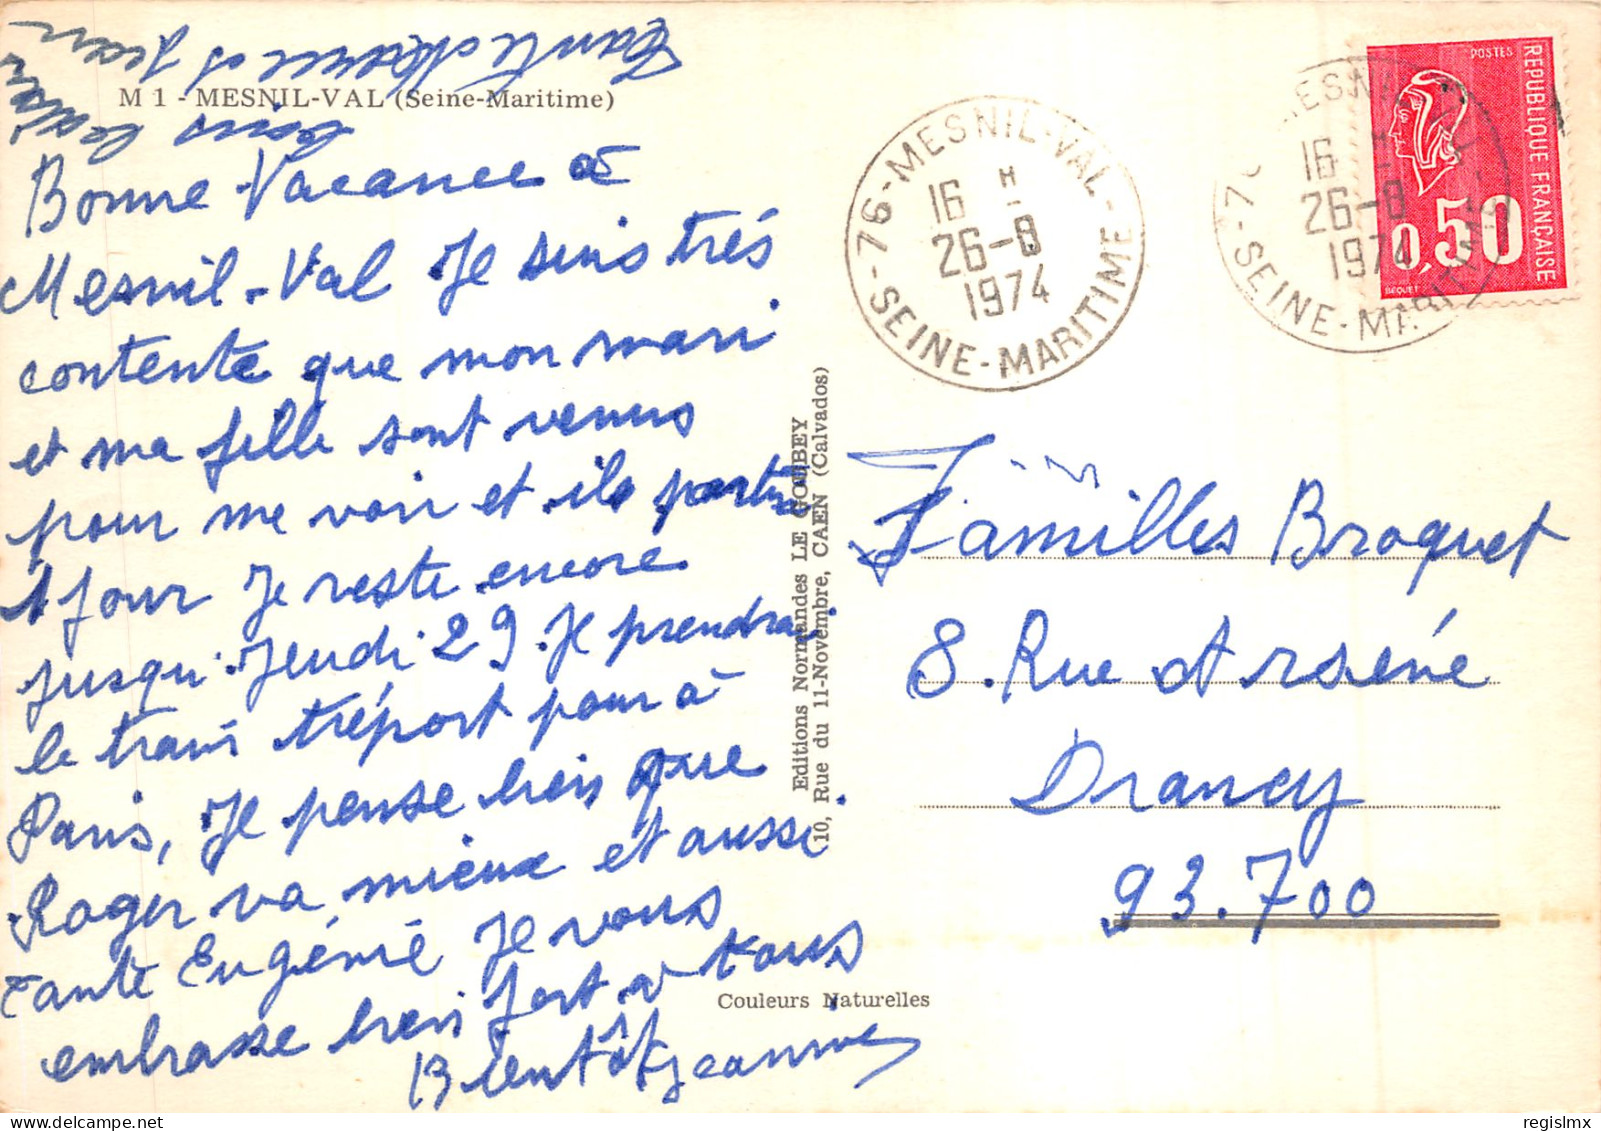 M 1 - MESNIL-VAL (Seine-Maritime)
Bonne Vacance à
Mesnil-Val Je suis trés
contente que mon mari
et ma fille sont venus
pour me voir et ils
1 jour Je reste encore
jusqu' Jeudi 29. Je prendrai
le train tréport pour à
Paris, Je pense bien que
Roger va mieux et aussi
tante Eugénie Je vous
embrasse bien fort a tous
Bientôt Jeannine
tante et Jean
tous
Editions Normandes LE GOUBEY
10, Rue du 11-Novembre, CAEN (Calvados)
Couleurs Naturelles
76 - MESNIL-VAL - SEINE-MARITIME
16 H
26-8
1974
76 MESNIL SEINE-MARITIME
16 H
26-8
1974
POSTES
REPUBLIQUE FRANÇAISE
0,50
BEQUET
Familles Broquet
8. Rue Arséne
Drancy
93.700
regislmx